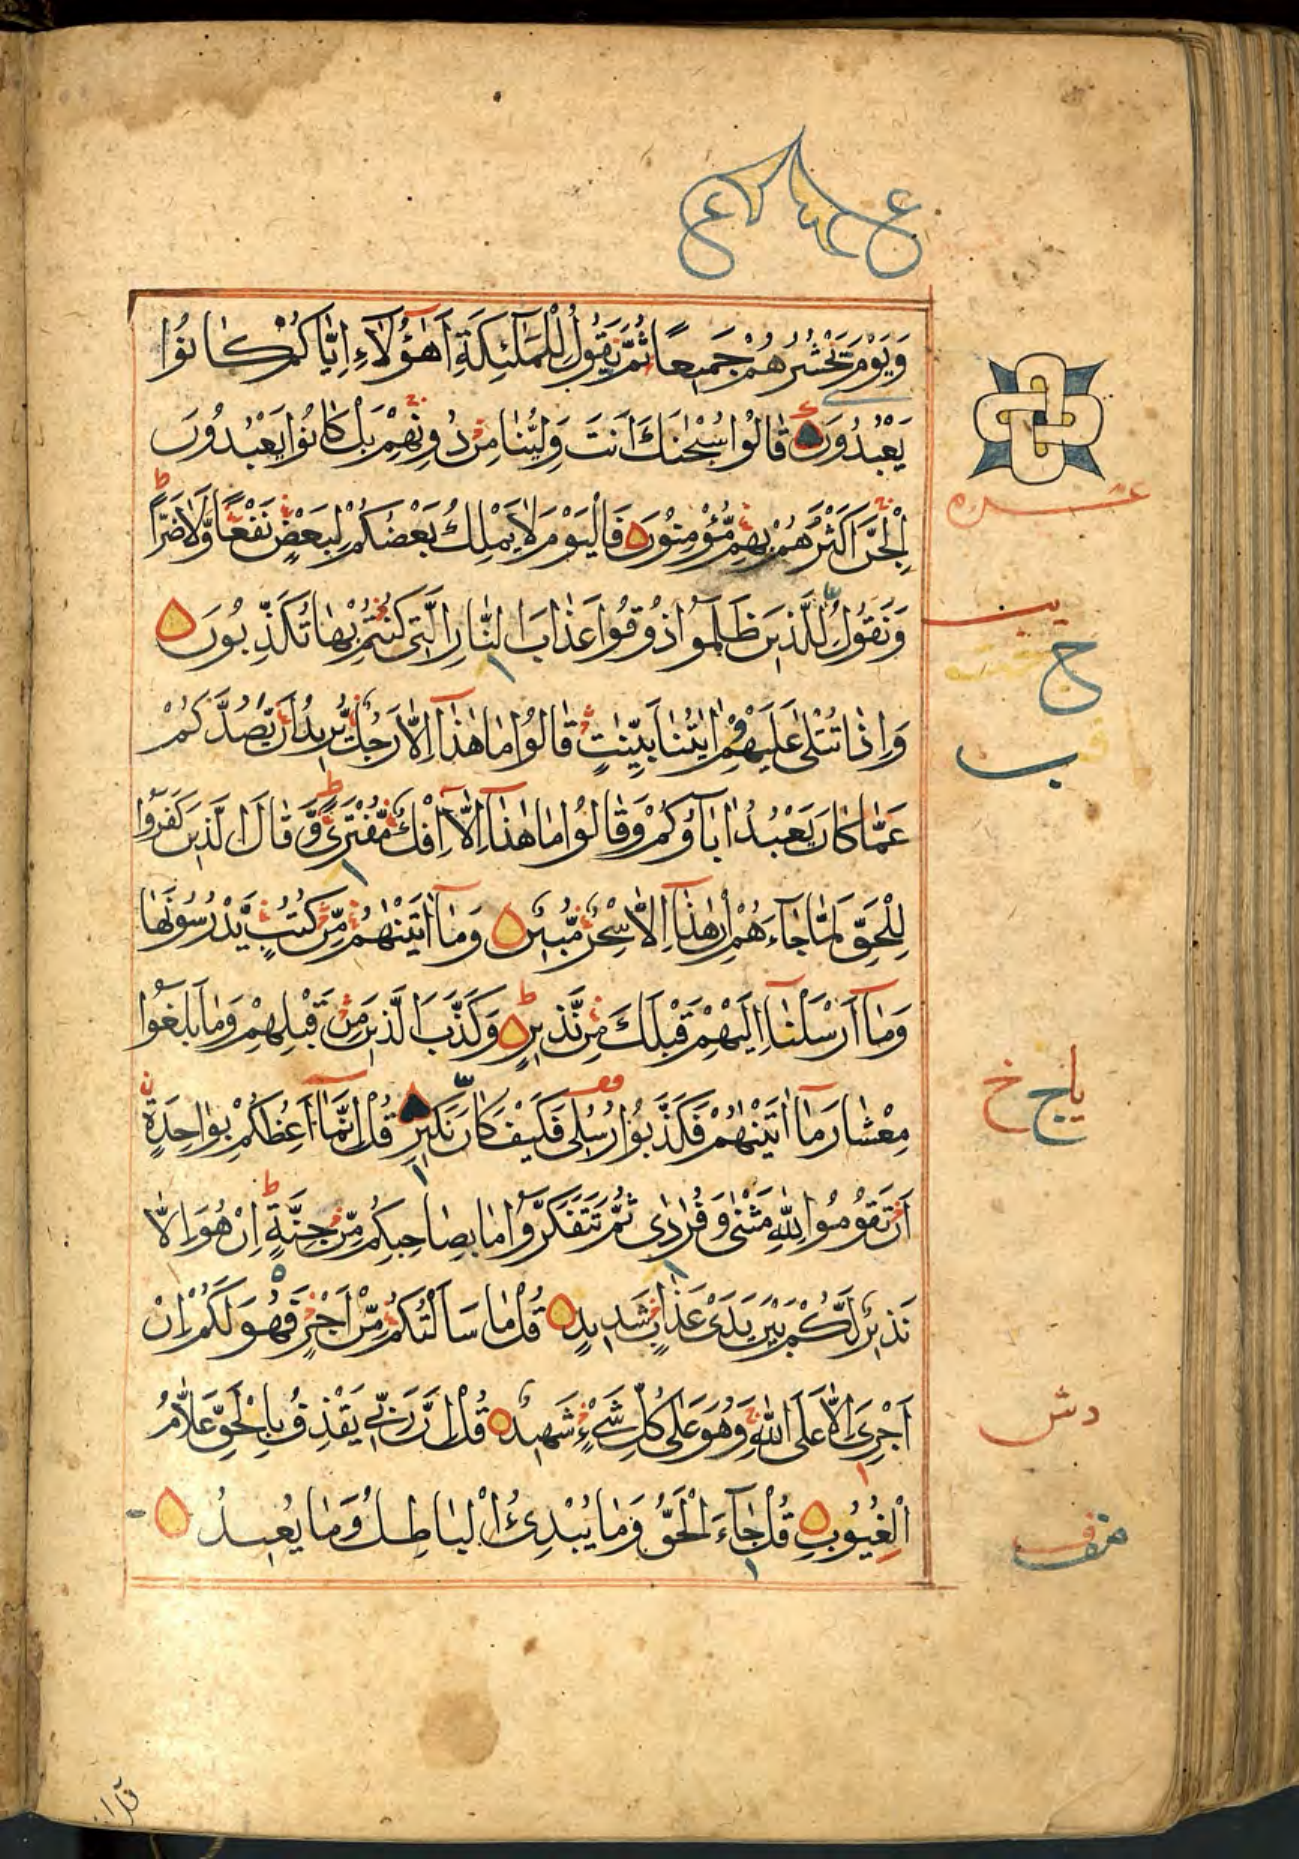 وَيَوْمَ نَحْشُرُهُمْ جَمِيعًا ثُمَّ نَقُولُ لِلْمَلٰٓئِكَةِ اَهٰٓؤُلَآءِ اِيَّاكُمْ كَانُوْا
يَعْبُدُوْنَ قَالُوْا سُبْحٰنَكَ اَنْتَ وَلِيُّنَا مِنْ دُوْنِهِمْ بَلْ كَانُوْا يَعْبُدُوْنَ
الْجِنَّ اَكْثَرُهُمْ بِهِمْ مُّؤْمِنُوْنَ فَالْيَوْمَ لَا يَمْلِكُ بَعْضُكُمْ لِبَعْضٍ نَفْعًا وَّلَا ضَرًّا
وَنَقُوْلُ لِلَّذِيْنَ ظَلَمُوْا ذُوْقُوْا عَذَابَ النَّارِ الَّتِيْ كُنْتُمْ بِهَا تُكَذِّبُوْنَ
وَاِذَا تُتْلٰى عَلَيْهِمْ اٰيٰتُنَا بَيِّنٰتٍ قَالُوْا مَا هٰذَآ اِلَّا رَجُلٌ يُّرِيْدُ اَنْ يَّصُدَّكُمْ
عَمَّا كَانَ يَعْبُدُ اٰبَآؤُكُمْ وَقَالُوْا مَا هٰذَآ اِلَّآ اِفْكٌ مُّفْتَرًى وَّقَالَ الَّذِيْنَ كَفَرُوْا
لِلْحَقِّ لَمَّا جَآءَهُمْ اِنْ هٰذَآ اِلَّا سِحْرٌ مُّبِيْنٌ وَمَآ اٰتَيْنٰهُمْ مِّنْ كُتُبٍ يَّدْرُسُوْنَهَا
وَمَآ اَرْسَلْنَآ اِلَيْهِمْ قَبْلَكَ مِنْ نَّذِيْرٍ وَكَذَّبَ الَّذِيْنَ مِنْ قَبْلِهِمْ وَمَا بَلَغُوْا
مِعْشَارَ مَآ اٰتَيْنٰهُمْ فَكَذَّبُوْا رُسُلِيْ فَكَيْفَ كَانَ نَكِيْرِ قُلْ اِنَّمَآ اَعِظُكُمْ بِوَاحِدَةٍ
اَنْ تَقُوْمُوْا لِلّٰهِ مَثْنٰى وَفُرَادٰى ثُمَّ تَتَفَكَّرُوْا مَا بِصَاحِبِكُمْ مِّنْ جِنَّةٍ اِنْ هُوَ اِلَّا
نَذِيْرٌ لَّكُمْ بَيْنَ يَدَيْ عَذَابٍ شَدِيْدٍ قُلْ مَا سَاَلْتُكُمْ مِّنْ اَجْرٍ فَهُوَ لَكُمْ اِنْ
اَجْرِيَ اِلَّا عَلَى اللّٰهِ وَهُوَ عَلٰى كُلِّ شَيْءٍ شَهِيْدٌ قُلْ اِنَّ رَبِّيْ يَقْذِفُ بِالْحَقِّ عَلَّامُ
الْغُيُوْبِ قُلْ جَآءَ الْحَقُّ وَمَا يُبْدِئُ الْبَاطِلُ وَمَا يُعِيْدُ